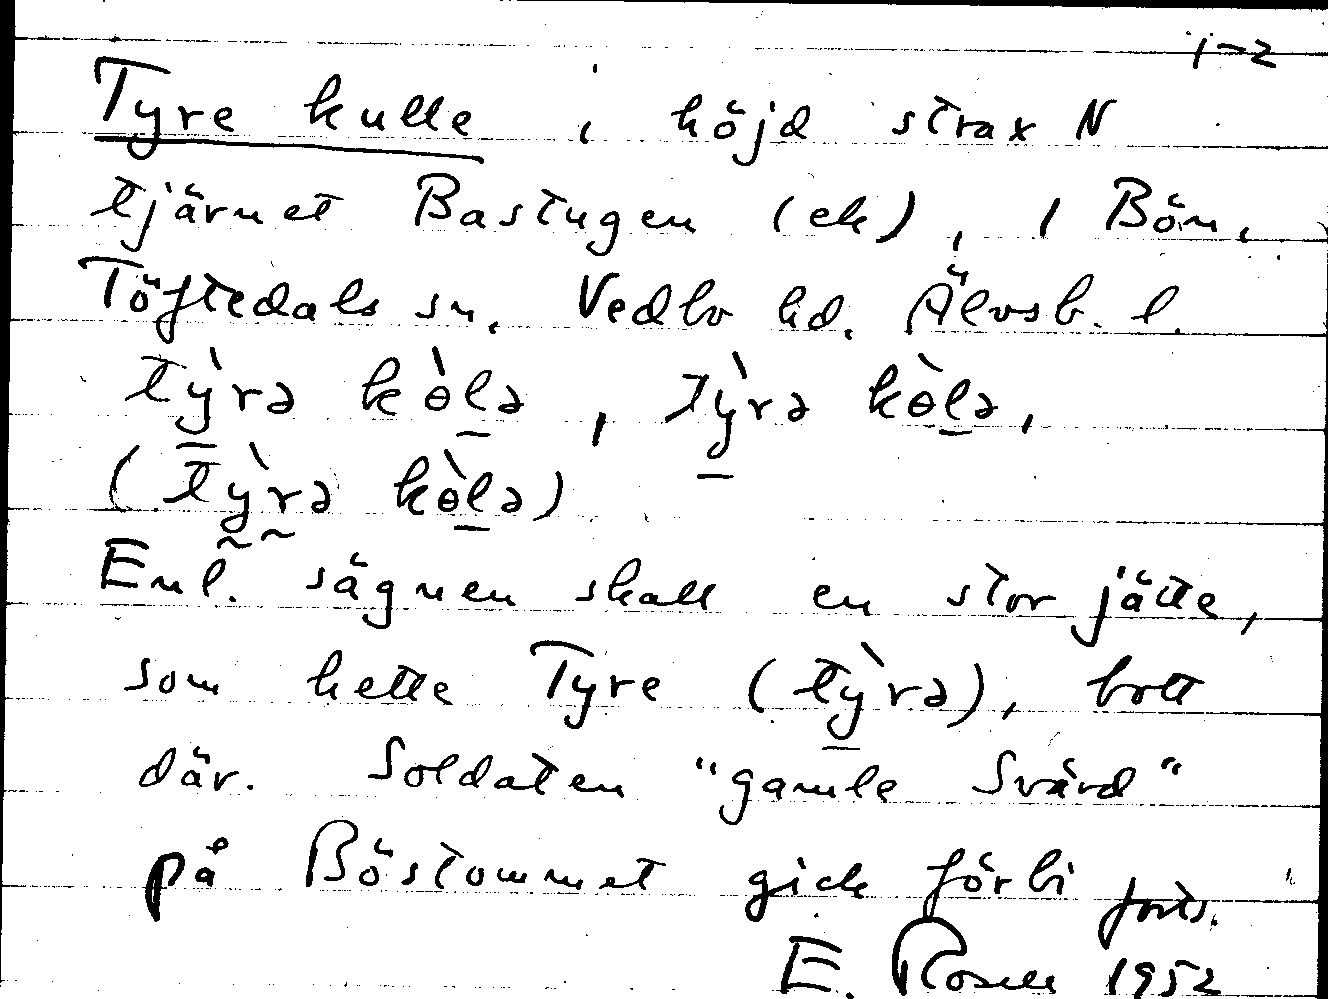 1-2
Tyre kulle, höjd strax N
tjärnet Bastugen (ek), i Bön,
Töftedals sn, Vedbo hd. Älvsb. l.
tỳrə kɵ̀lə, tỳrə kɵ̀lə,
(tỳrə kɵ̀lə)
Enl. sägnen skall en stor jätte,
som hette Tyre (tỳrə), bott
där. Soldaten "gamle Svärd"
på Böstommet gick förbi forts.
E. Rosell 1952